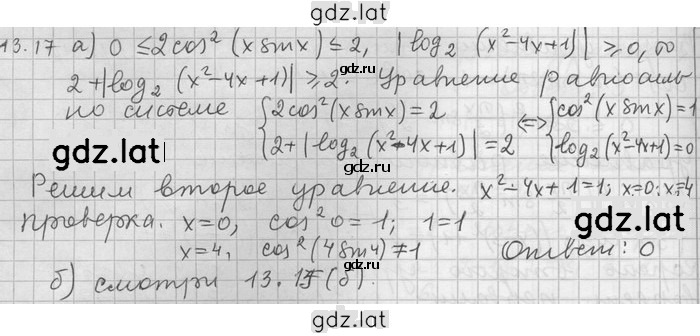 gdz.lat
13.17 а) 0 ≤ 2cos² (x sinx) ≤ 2, |log₂ (x²-4x+1)| ≥ 0,
2+|log₂ (x²-4x+1)| ≥ 2. Уравнение равносиль
но системе {2cos²(x sinx) = 2 <=> {cos²(x sinx) = 1
{2+|log₂(x²-4x+1)| = 2 {log₂(x²-4x+1)=0
gdz.lat
Решим второе уравнение. x²-4x+1=1; x=0; x=4
проверка. x=0, cos²0=1; 1=1
gdz.lat
x=4, cos²(4sin4)≠1 Ответ: 0
б) смотри 13.17(б).
gdz.lat